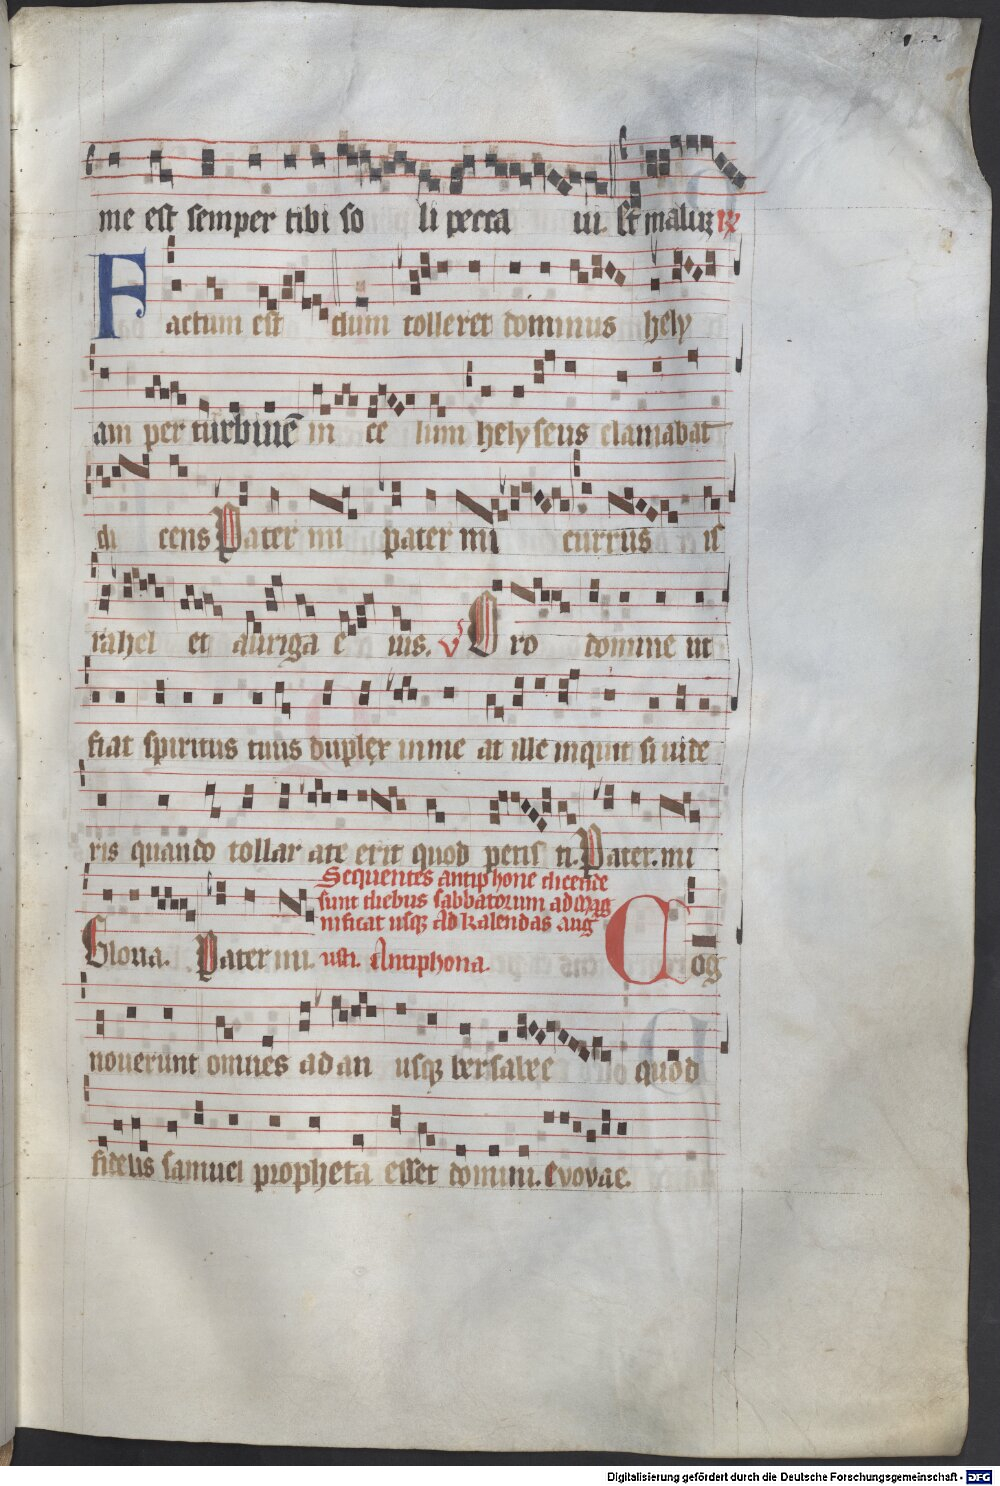 me est semper tibi so li pecca ui. Et maluꝫ ℟
Factum est dum tolleret dominus hely
am per turbinē in ce lum helyseus clamabat
di cens Pater mi pater mi currus is
rahel et auriga e ius. ℣ Oro domine ut
fiat spiritus tuus duplex in me at ille inquit si uide
ris quando tollar a te erit quod petis ti. Pater. mi
Sequentes antiphone dicende
sunt diebus sabbatorum ad mag
nificat usqꝫ ad kalendas aug
Gloria. Pater mi. usti. Antiphona. Cog
nouerunt omnes a dan usqꝫ bersabee quod
fidelis samuel propheta esset domini. Evovae.
Digitalisierung gefördert durch die Deutsche Forschungsgemeinschaft - DFG